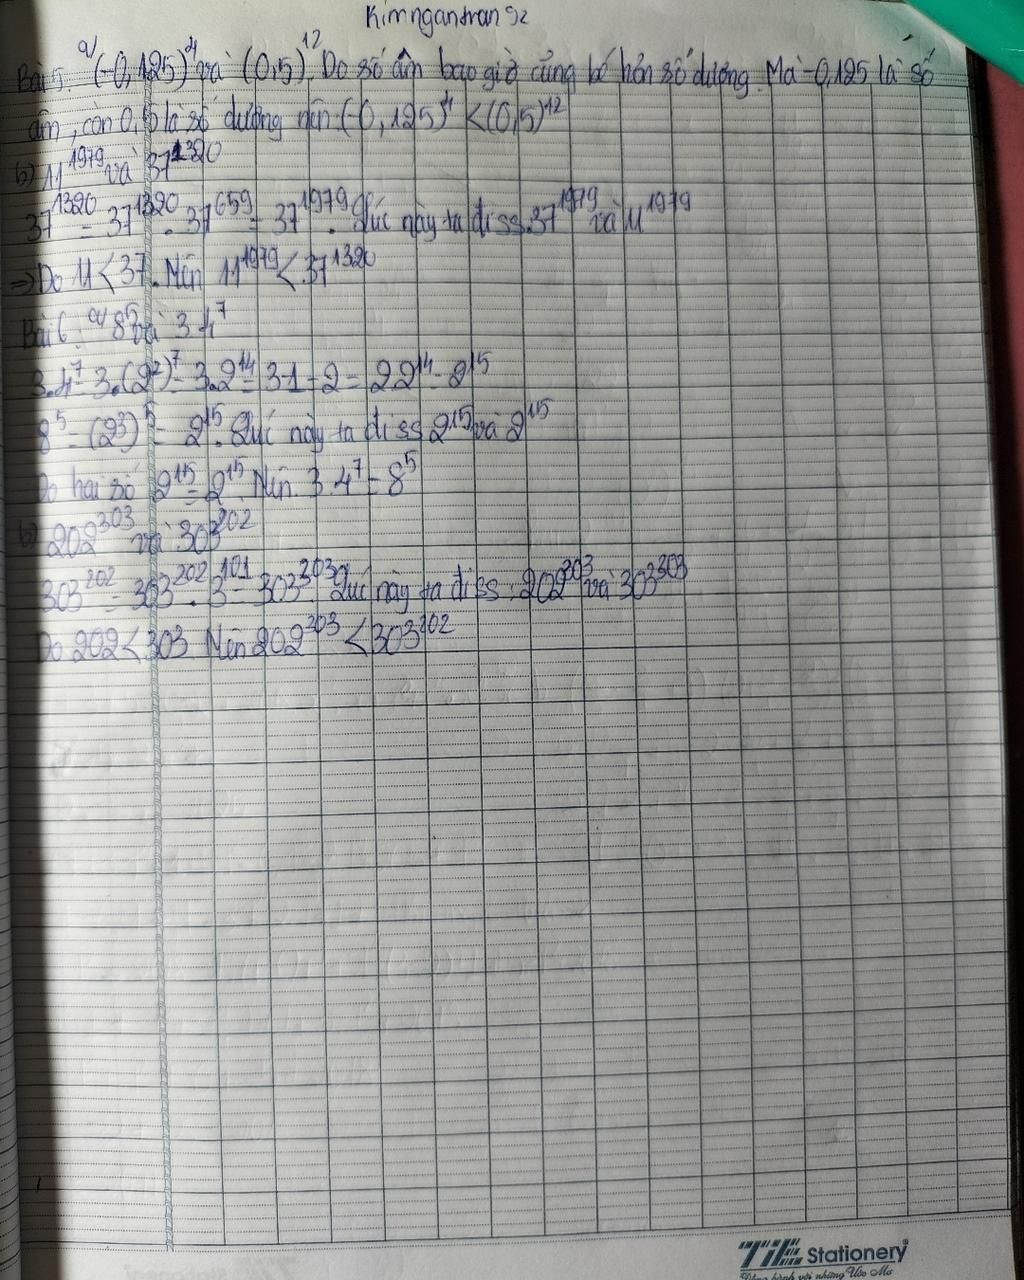 Kimngantran92
Bài 5. a/ (-0,125)⁴ và (0,5)¹². Do số âm bao giờ cũng bé hơn số dương. Mà -0,125 là số
âm, còn 0,5 là số dương nên (-0,125)⁴ < (0,5)¹²
b) 11¹⁹⁷⁹ và 37¹³²⁰
37¹³²⁰ = 37¹³²⁰ . 37⁶⁵⁹ = 37¹⁹⁷⁹. Lúc này ta đi ss 37¹⁹⁷⁹ và 11¹⁹⁷⁹
⇒ Do 11 < 37. Nên 11¹⁹⁷⁹ < 37¹³²⁰
Bài 6: a/ 8⁵ và 3 4⁷
3.4⁷ = 3.(2²)⁷ = 3.2¹⁴ = 3-1 = 2 = 2 2¹⁴ = 2¹⁵
8⁵ = (2³)⁵ = 2¹⁵. Lúc này ta đi ss 2¹⁵ và 2¹⁵
Do hai số 2¹⁵ = 2¹⁵. Nên 3.4⁷ = 8⁵
b) 202³⁰³ và 303²⁰²
303²⁰² = 303²⁰² . 3¹⁰¹ = 303³⁰³. Lúc này ta đi ss: 202³⁰³ và 303³⁰³
Do 202 < 303 Nên 202³⁰³ < 303²⁰²
TiTi Stationery
Đồng hành với những Ước Mơ